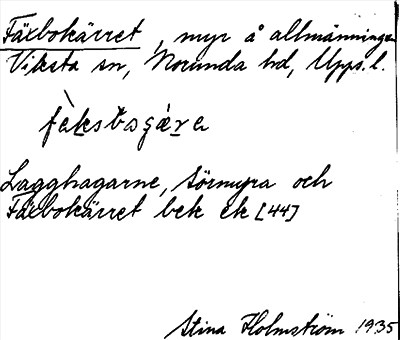 Fäxbokärret, myr å allmänningen
Viksta sn, Norunda hd, Upps. l.
Lagghagarne, Sörmyra och
Fäxbokärret bek ek [44]
Stina Holmström 1935